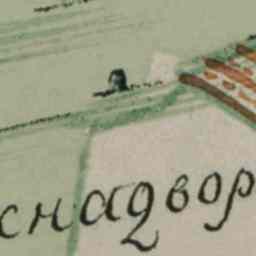 снадвор